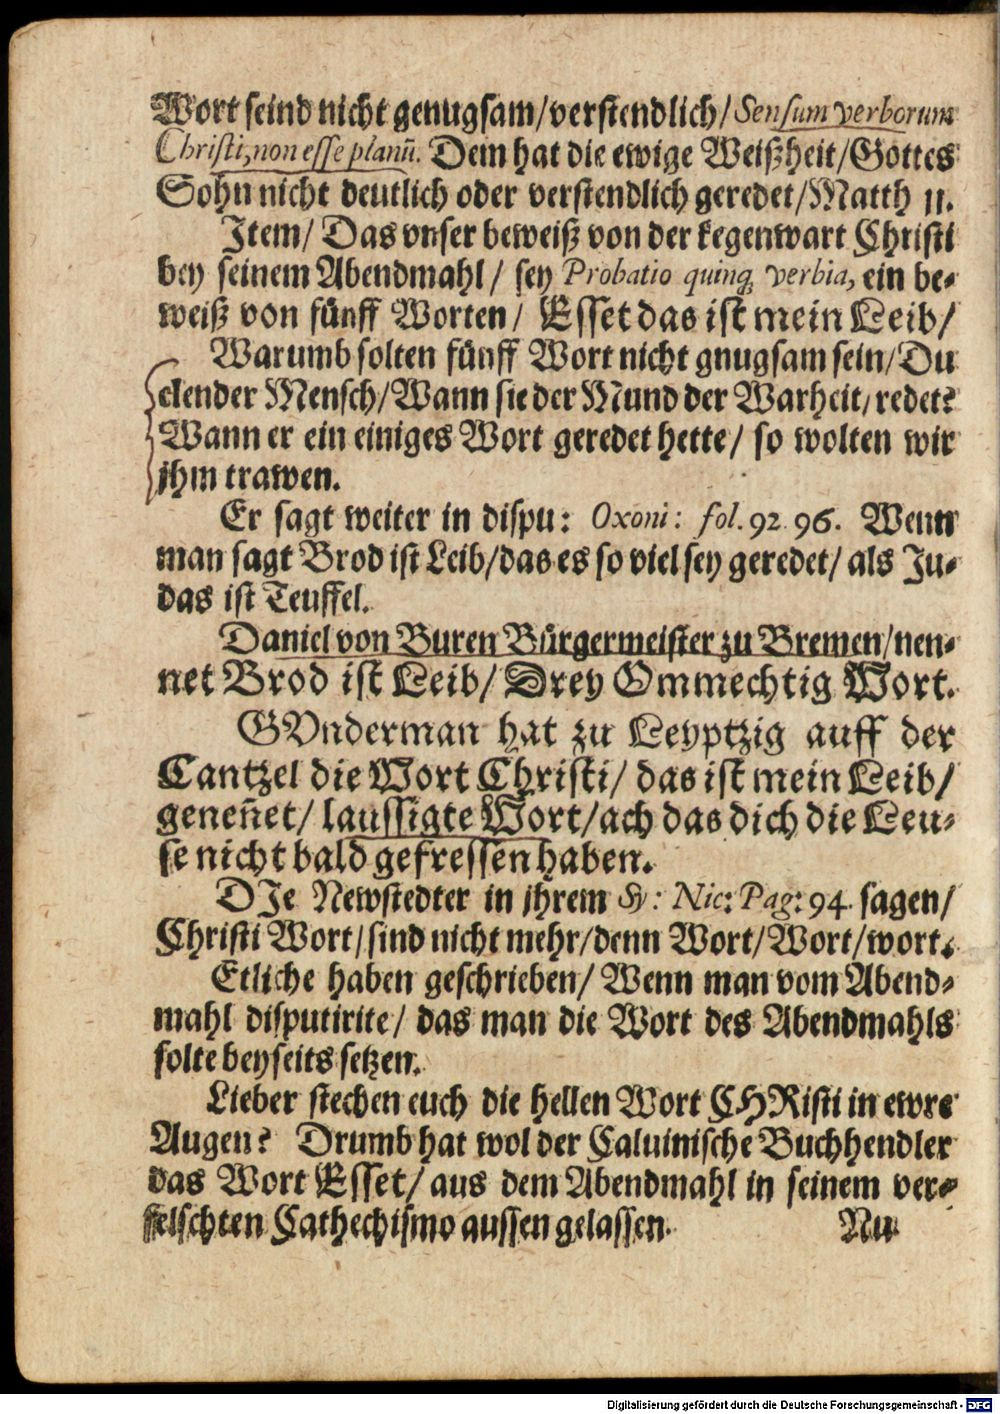 Wort seind nicht genugsam/verstendlich/Sensum verborum
Christi, non esse planũ. Dem hat die ewige Weißheit/Gottes
Sohn nicht deutlich oder verstendlich geredet/Matth 11.
Item/ Das vnser beweiß von der kegenwart Christi
bey seinem Abendmahl/ sey Probatio quinq; verbia, ein be-
weiß von fünff Worten/ Esset das ist mein Leib/
Warumb solten fünff Wort nicht gnugsam sein/Du
elender Mensch/Wann sie der Mund der Warheit/redet?
Wann er ein einiges Wort geredet hette/ so wolten wir
jhm trawen.
Er sagt weiter in dispu: Oxoni: fol. 92 96. Wenn
man sagt Brod ist Leib/das es so viel sey geredet/ als Ju-
das ist Teuffel.
Daniel von Buren Bürgermeister zu Bremen/nen-
net Brod ist Leib/ Drey Ommechtig Wort.
GVnderman hat zu Leyptzig auff der
Cantzel die Wort Christi/ das ist mein Leib/
geneñet/ laussigte Wort/ach das dich die Leu-
se nicht bald gefressen haben.
DJe Newstedter in jhrem Sy: Nic: Pag: 94. sagen/
Christi Wort/sind nicht mehr/denn Wort/Wort/wort.
Etliche haben geschrieben/ Wenn man vom Abend-
mahl disputirite/ das man die Wort des Abendmahls
solte beyseits setzen.
Lieber stechen euch die hellen Wort CHRisti in ewre
Augen? Drumb hat wol der Caluinische Buchhendler
das Wort Esset/ aus dem Abendmahl in seinem ver-
felschten Cathechismo aussen gelassen.
Nu
Digitalisierung gefördert durch die Deutsche Forschungsgemeinschaft - DFG